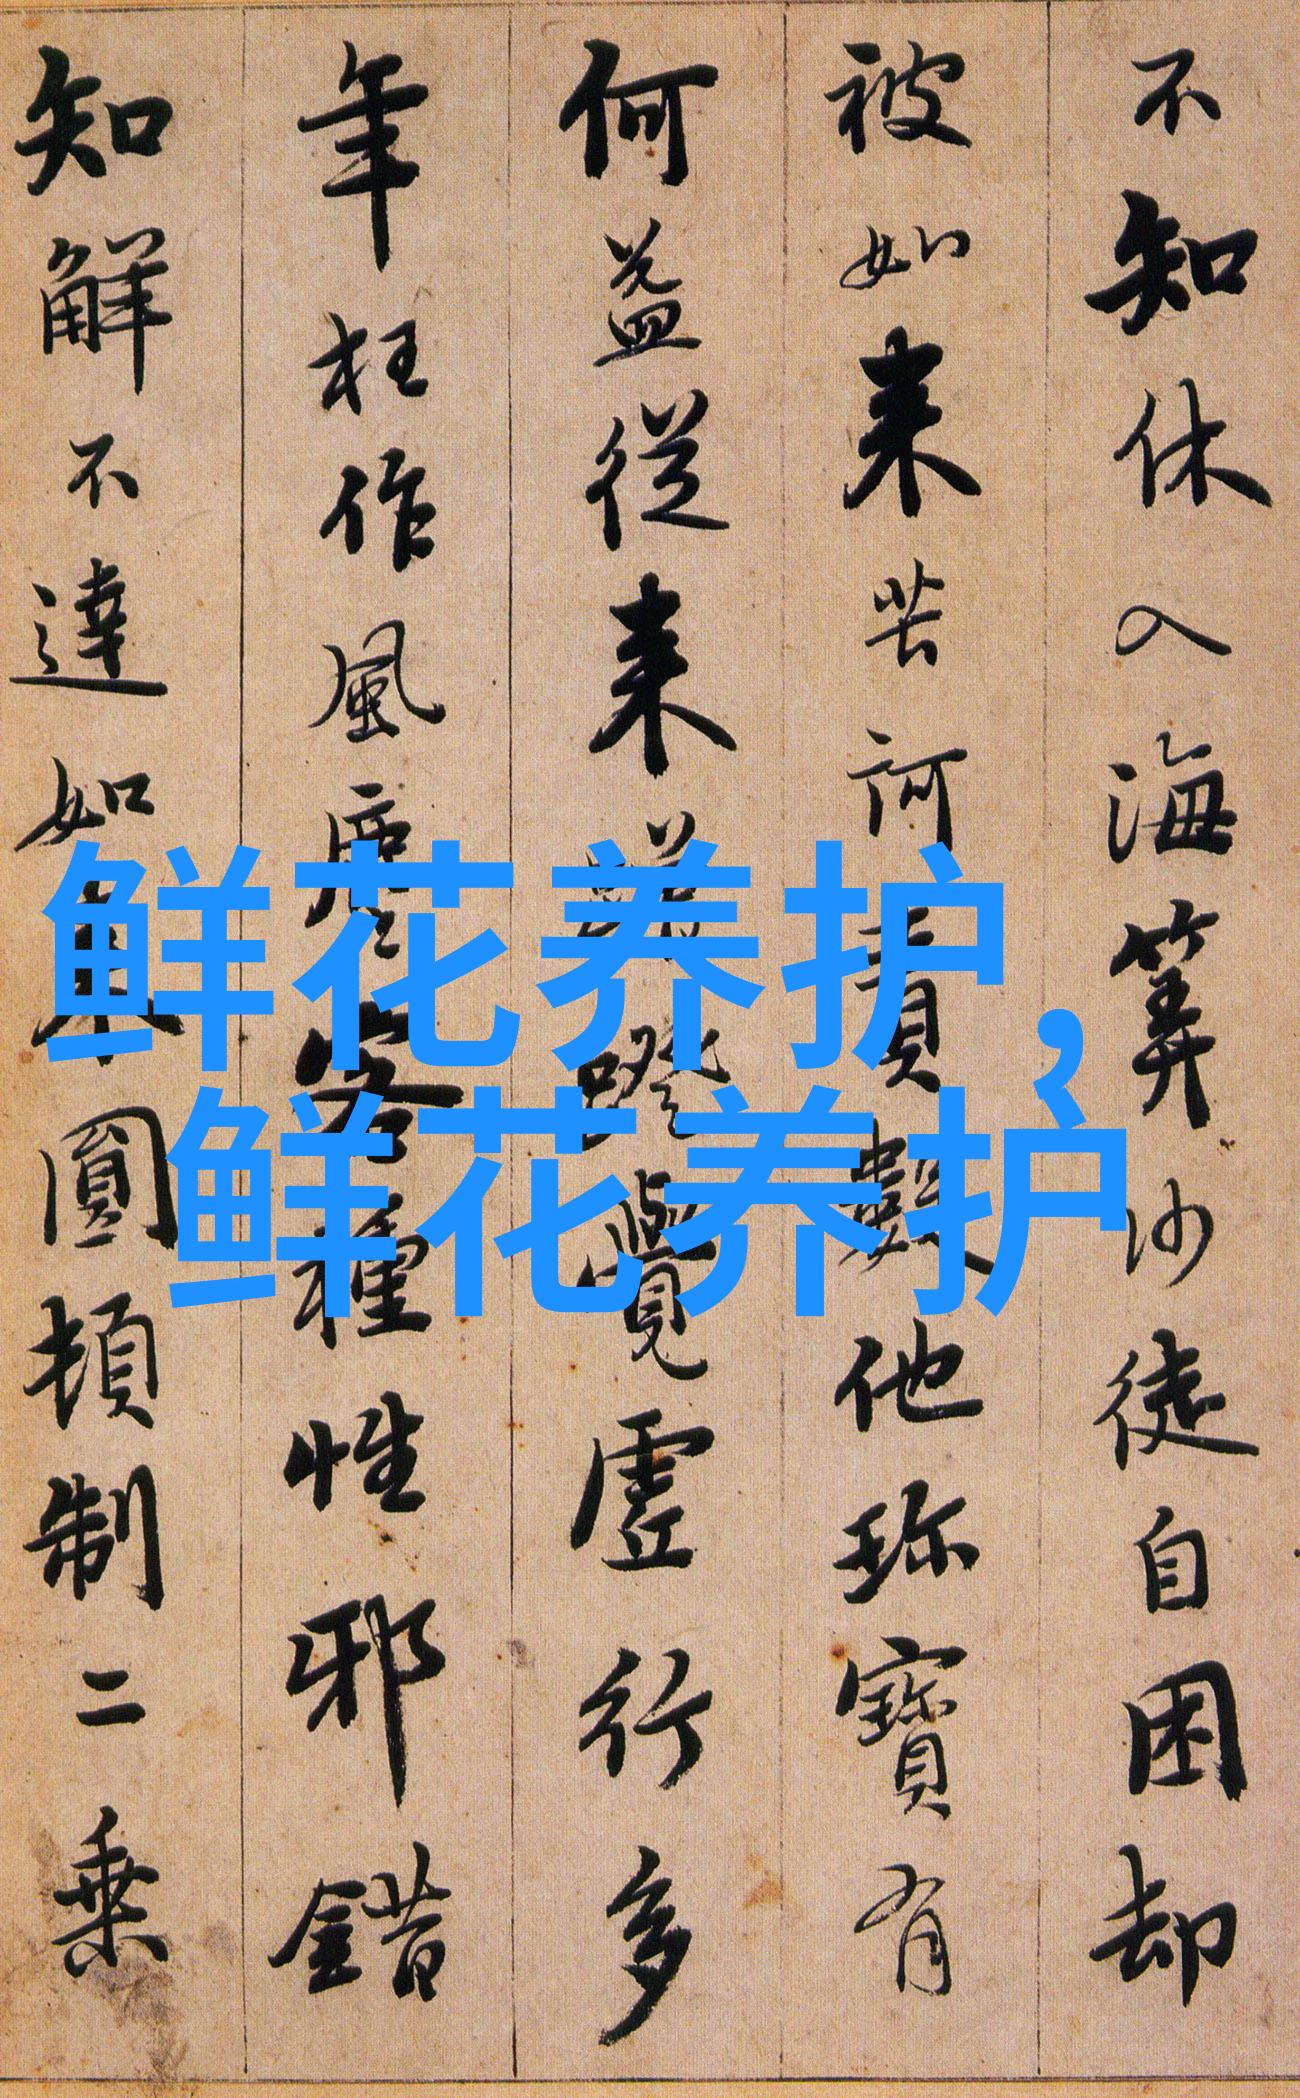 不知休入海筭沙徒自困却
被如来苦訶責數他珎寶有
何益從来蹭蹬覺虛行多
年枉作風塵客種性邪錯
知解不達如来圓頓制二乗
鲜花养护，
鲜花养护